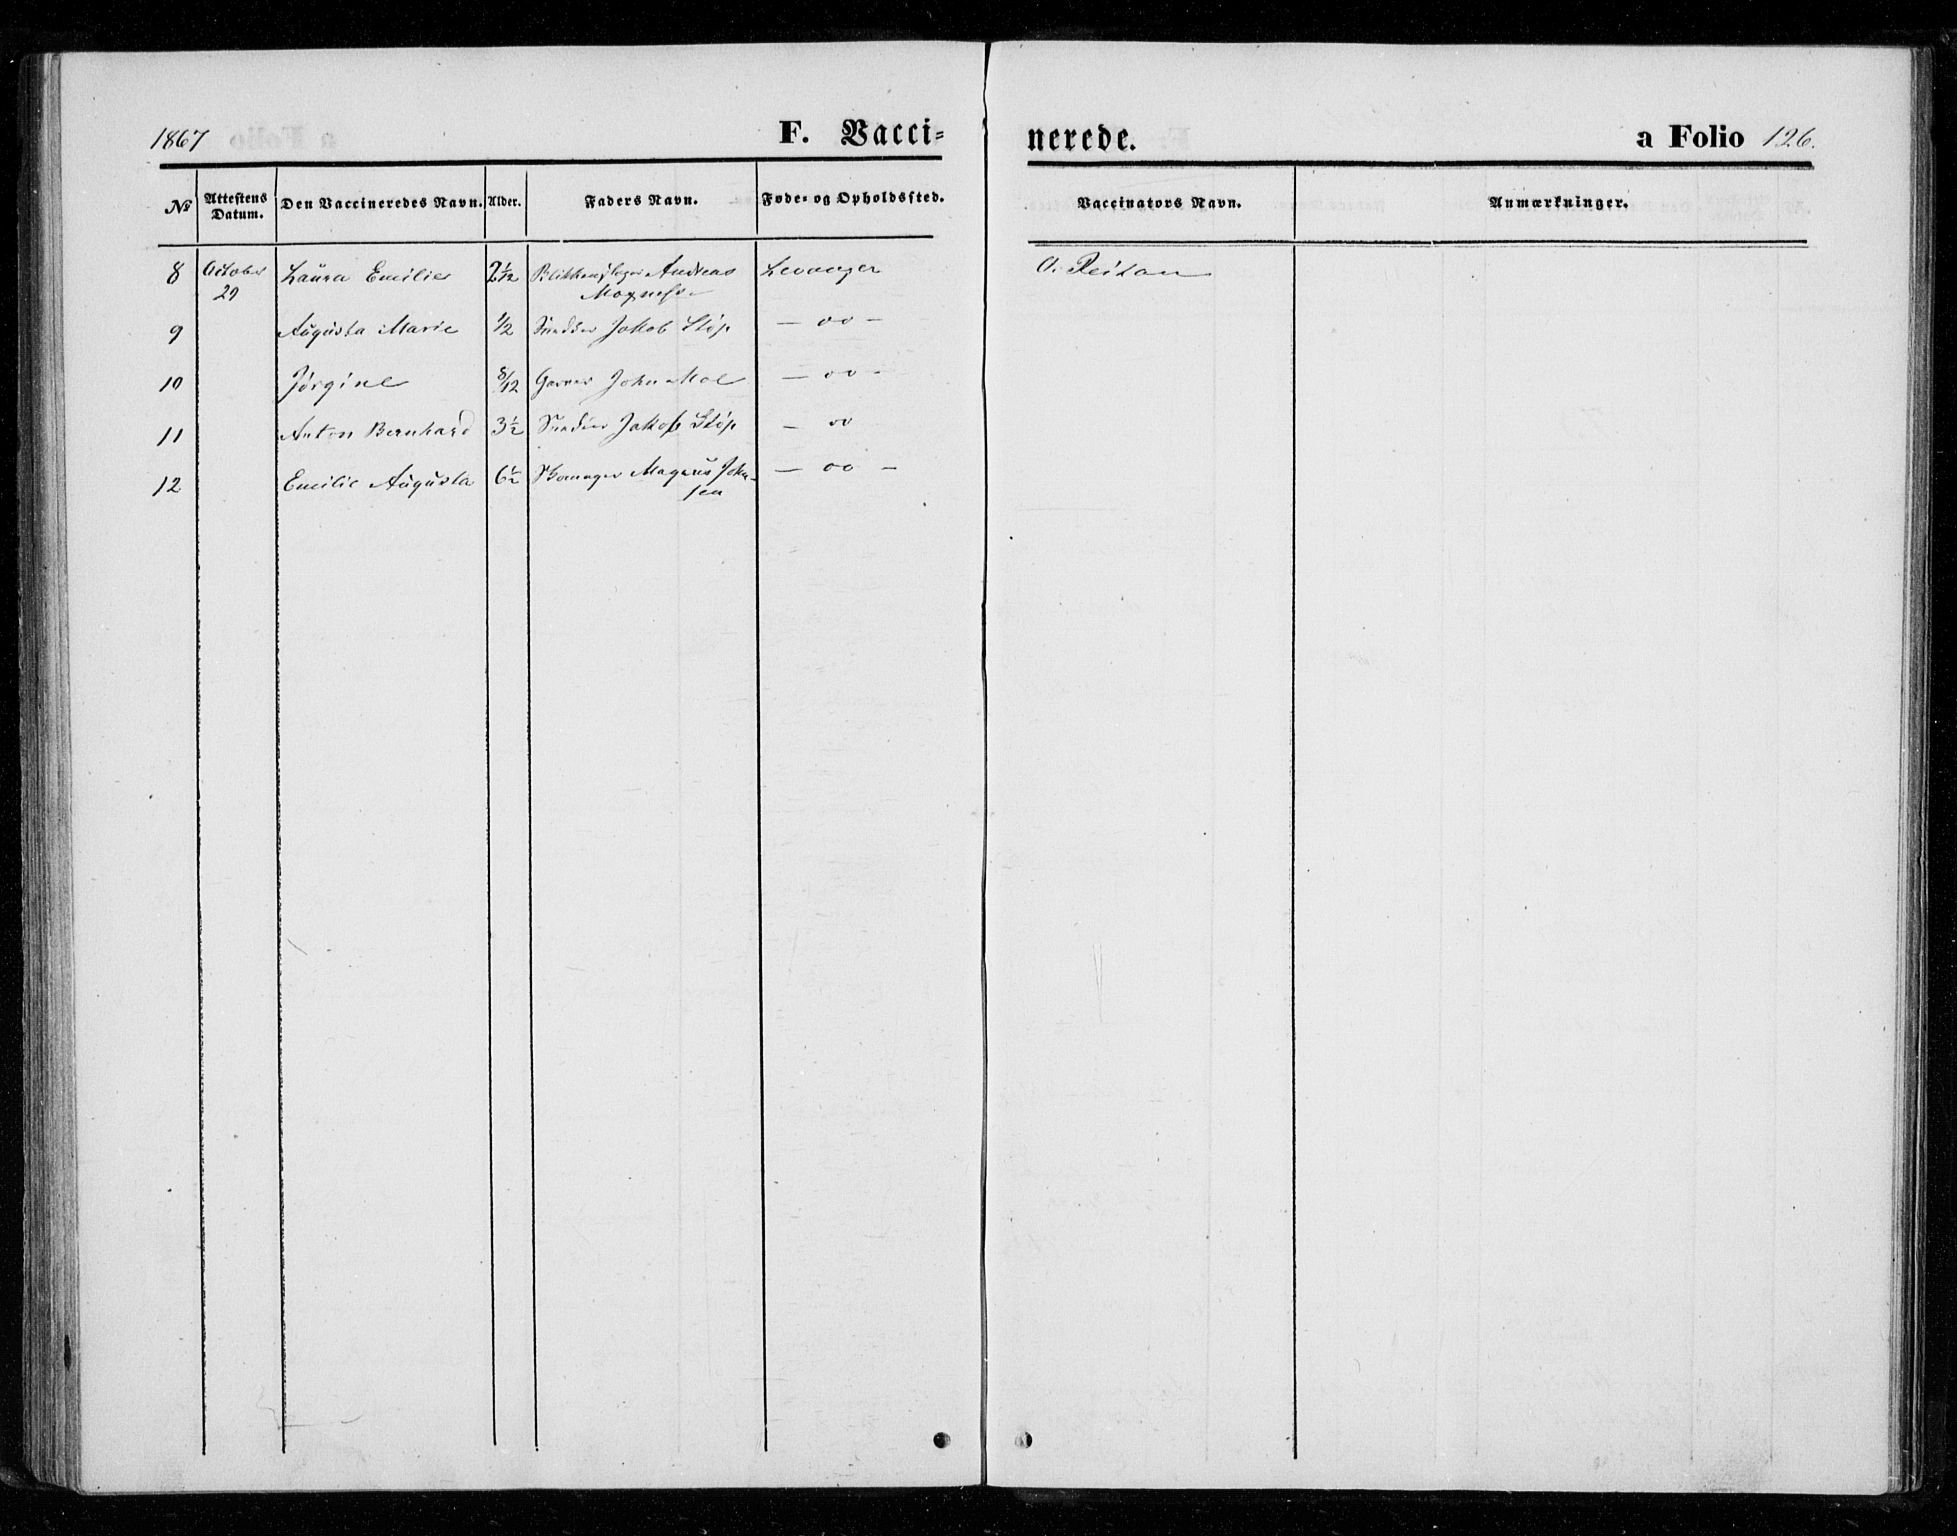 1867 F. Vacci= nerede. a Folio 126.
No Attestens Datum. Den Vaccineredes Navn. Alder. Faders Navn. Føde= og Opholdssted. Vaccinators Navn. Anmærkninger.
8 October 29 Laura Emilie 2 1/12 Andreas Levanger O. Reitan
9 Augusta Marie 1/2 Snedker Jakob Støp — oo —
10 Jørgine 8/12 Garver John Moe — oo -
11 Anton Bernhard 3½ Snedker Jakob Støp — oo
12 Emilie Augusta 6½ Skomager Magnus John-
sen — oo —